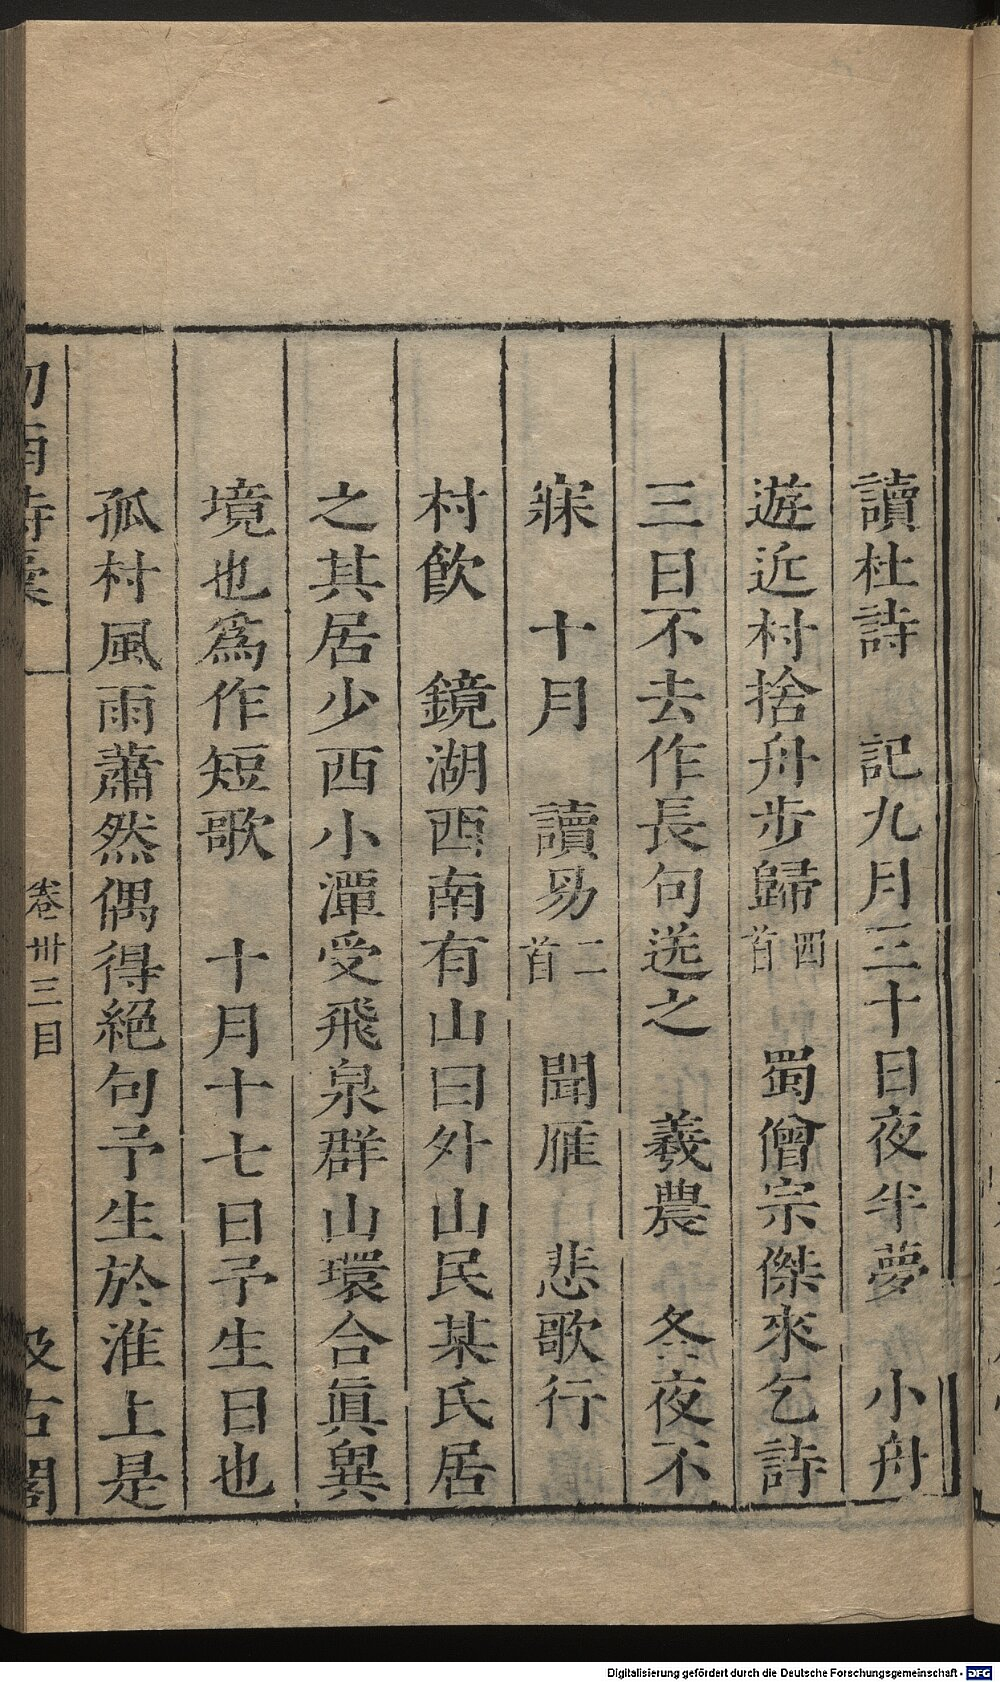 讀杜詩　記九月三十日夜半夢　小舟
遊近村捨舟步歸四首　蜀僧宗傑來乞詩
三日不去作長句送之　羲農　冬夜不
寐　十月　讀易二首　聞雁　悲歌行
村飲　鏡湖西南有山曰外山民某氏居
之其居少西小潭受飛泉群山環合眞異
境也爲作短歌　十月十七日予生日也
孤村風雨蕭然偶得絕句予生於淮上是
卷卅三目
Digitalisierung gefördert durch die Deutsche Forschungsgemeinschaft - DFG